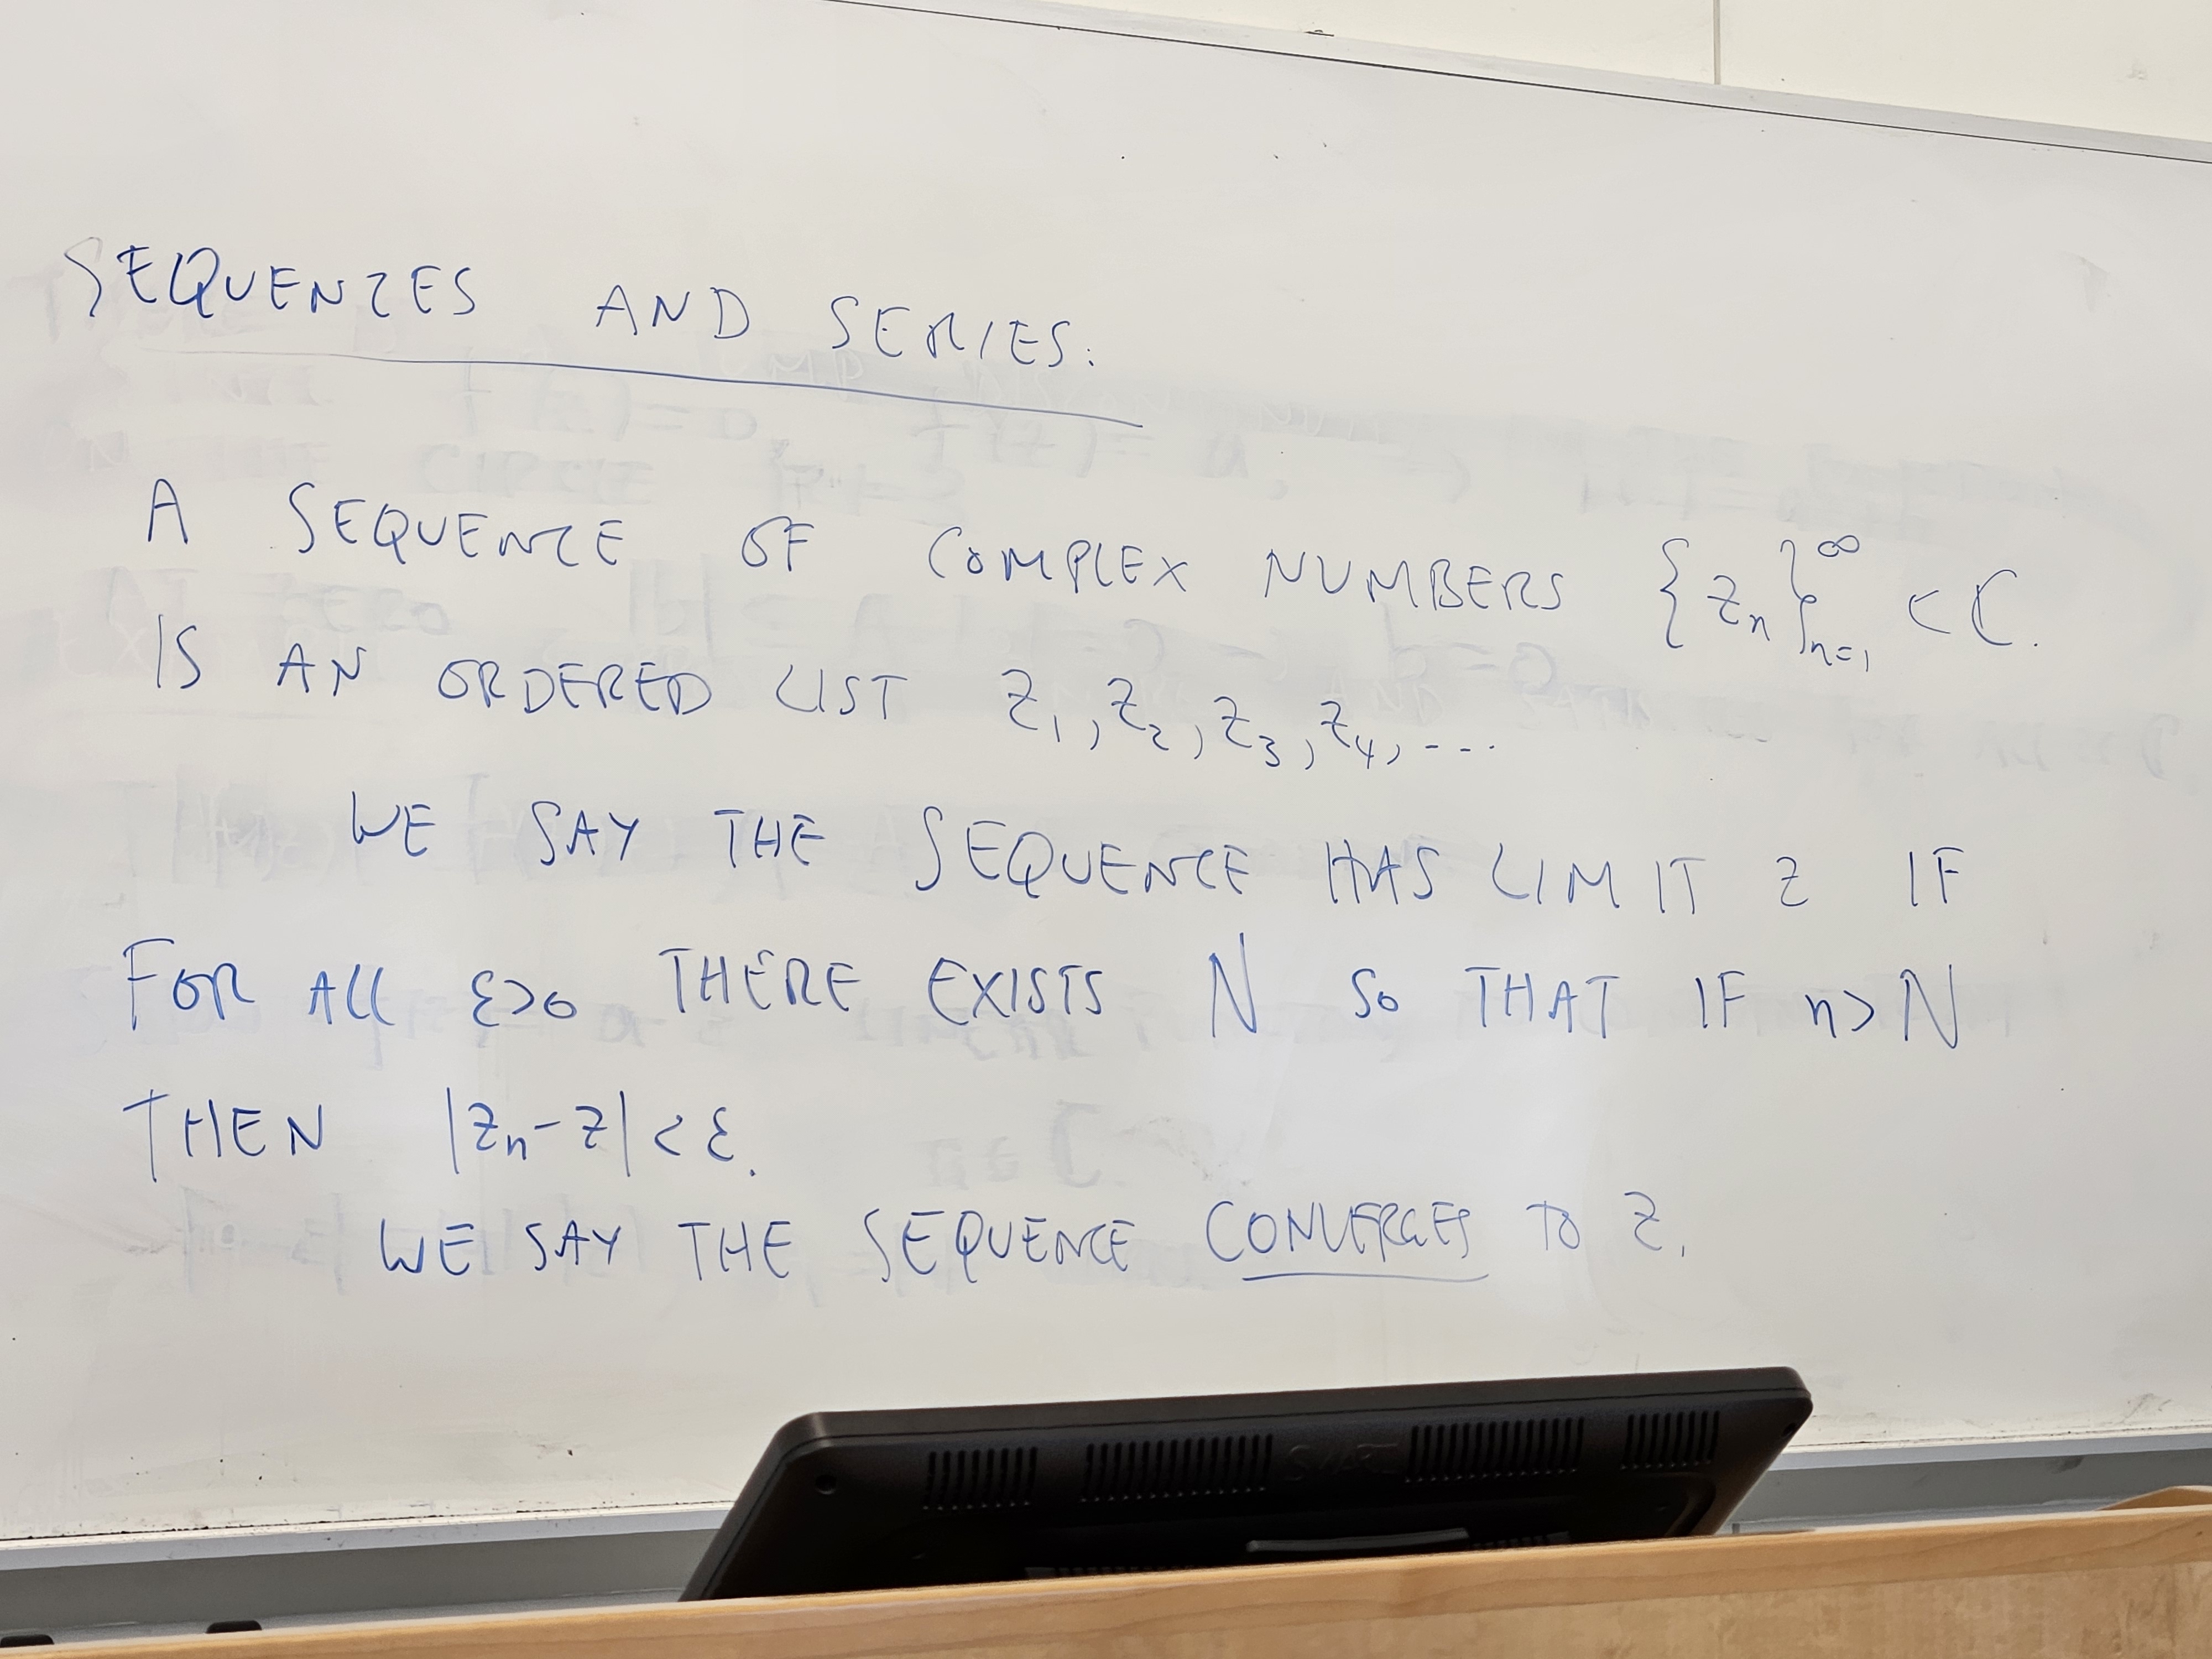 SEQUENCES AND SERIES:
A SEQUENCE OF COMPLEX NUMBERS {z_n}_{n=1}^∞ ⊂ ℂ.
IS AN ORDERED LIST z₁, z₂, z₃, z₄, ...
WE SAY THE SEQUENCE HAS LIMIT z IF
FOR ALL ε>0 THERE EXISTS N SO THAT IF n>N
THEN |z_n - z| < ε.
WE SAY THE SEQUENCE CONVERGES TO z.
SMART